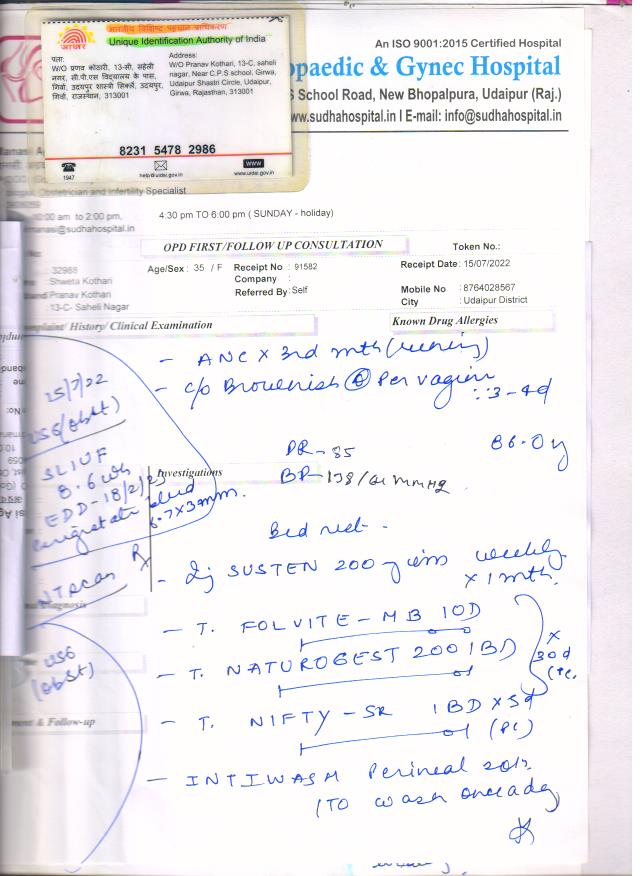 भारतीय विशिष्ट पहचान प्राधिकरण
Unique Identification Authority of India
आधार
पता:
W/O प्रणव कोठारी, 13-सी, सहेली
नगर, सी.पी.एस विद्यालय के पास,
गिर्वा, उदयपुर शास्त्री सिर्कल, उदयपुर,
गिर्वा, राजस्थान, 313001
Address:
W/O Pranav Kothari, 13-C, saheli
nagar, Near C.P.S school, Girwa,
Udaipur Shastri Circle, Udaipur,
Girwa, Rajasthan, 313001
8231 5478 2986
1947
help@uidai.gov.in
www
www.uidai.gov.in
An ISO 9001:2015 Certified Hospital
opaedic & Gynec Hospital
S School Road, New Bhopalpura, Udaipur (Raj.)
www.sudhahospital.in I E-mail: info@sudhahospital.in
Obstetrician and Infertility Specialist
10:00 am to 2:00 pm, 4:30 pm TO 6:00 pm ( SUNDAY - holiday)
manasi@sudhahospital.in
OPD FIRST/FOLLOW UP CONSULTATION
Token No.:
No: : 32988
Age/Sex : 35 / F
Receipt No : 91582
Receipt Date: 15/07/2022
: Shweta Kothari
Company :
Pranav Kothari
Referred By : Self
Mobile No : 8764028567
: 13-C- Saheli Nagar
City : Udaipur District
Complaint/ History/ Clinical Examination
Known Drug Allergies
- ANC x 3rd mth
- c/o Brownish Per vagina
3-4d
PR - 85
86.0
BP - 138/ mmHg
25/7/22
USG (obst)
SLIUF
8.6 wks
EDD - 18/2/23
6.7x3mm.
Investigations
Bed rest.
Rx
- Inj SUSTEN 200 weekly
x 1 mth.
NT scan
- T. FOLVITE - MB 1OD
- T. NATUROGEST 200 1BD
x 30d
- T. NIFTY - SR 1BD x 5d
(PC)
USG
(obst)
& Follow-up
- INTIWASH Perineal soln.
TO wash once a day